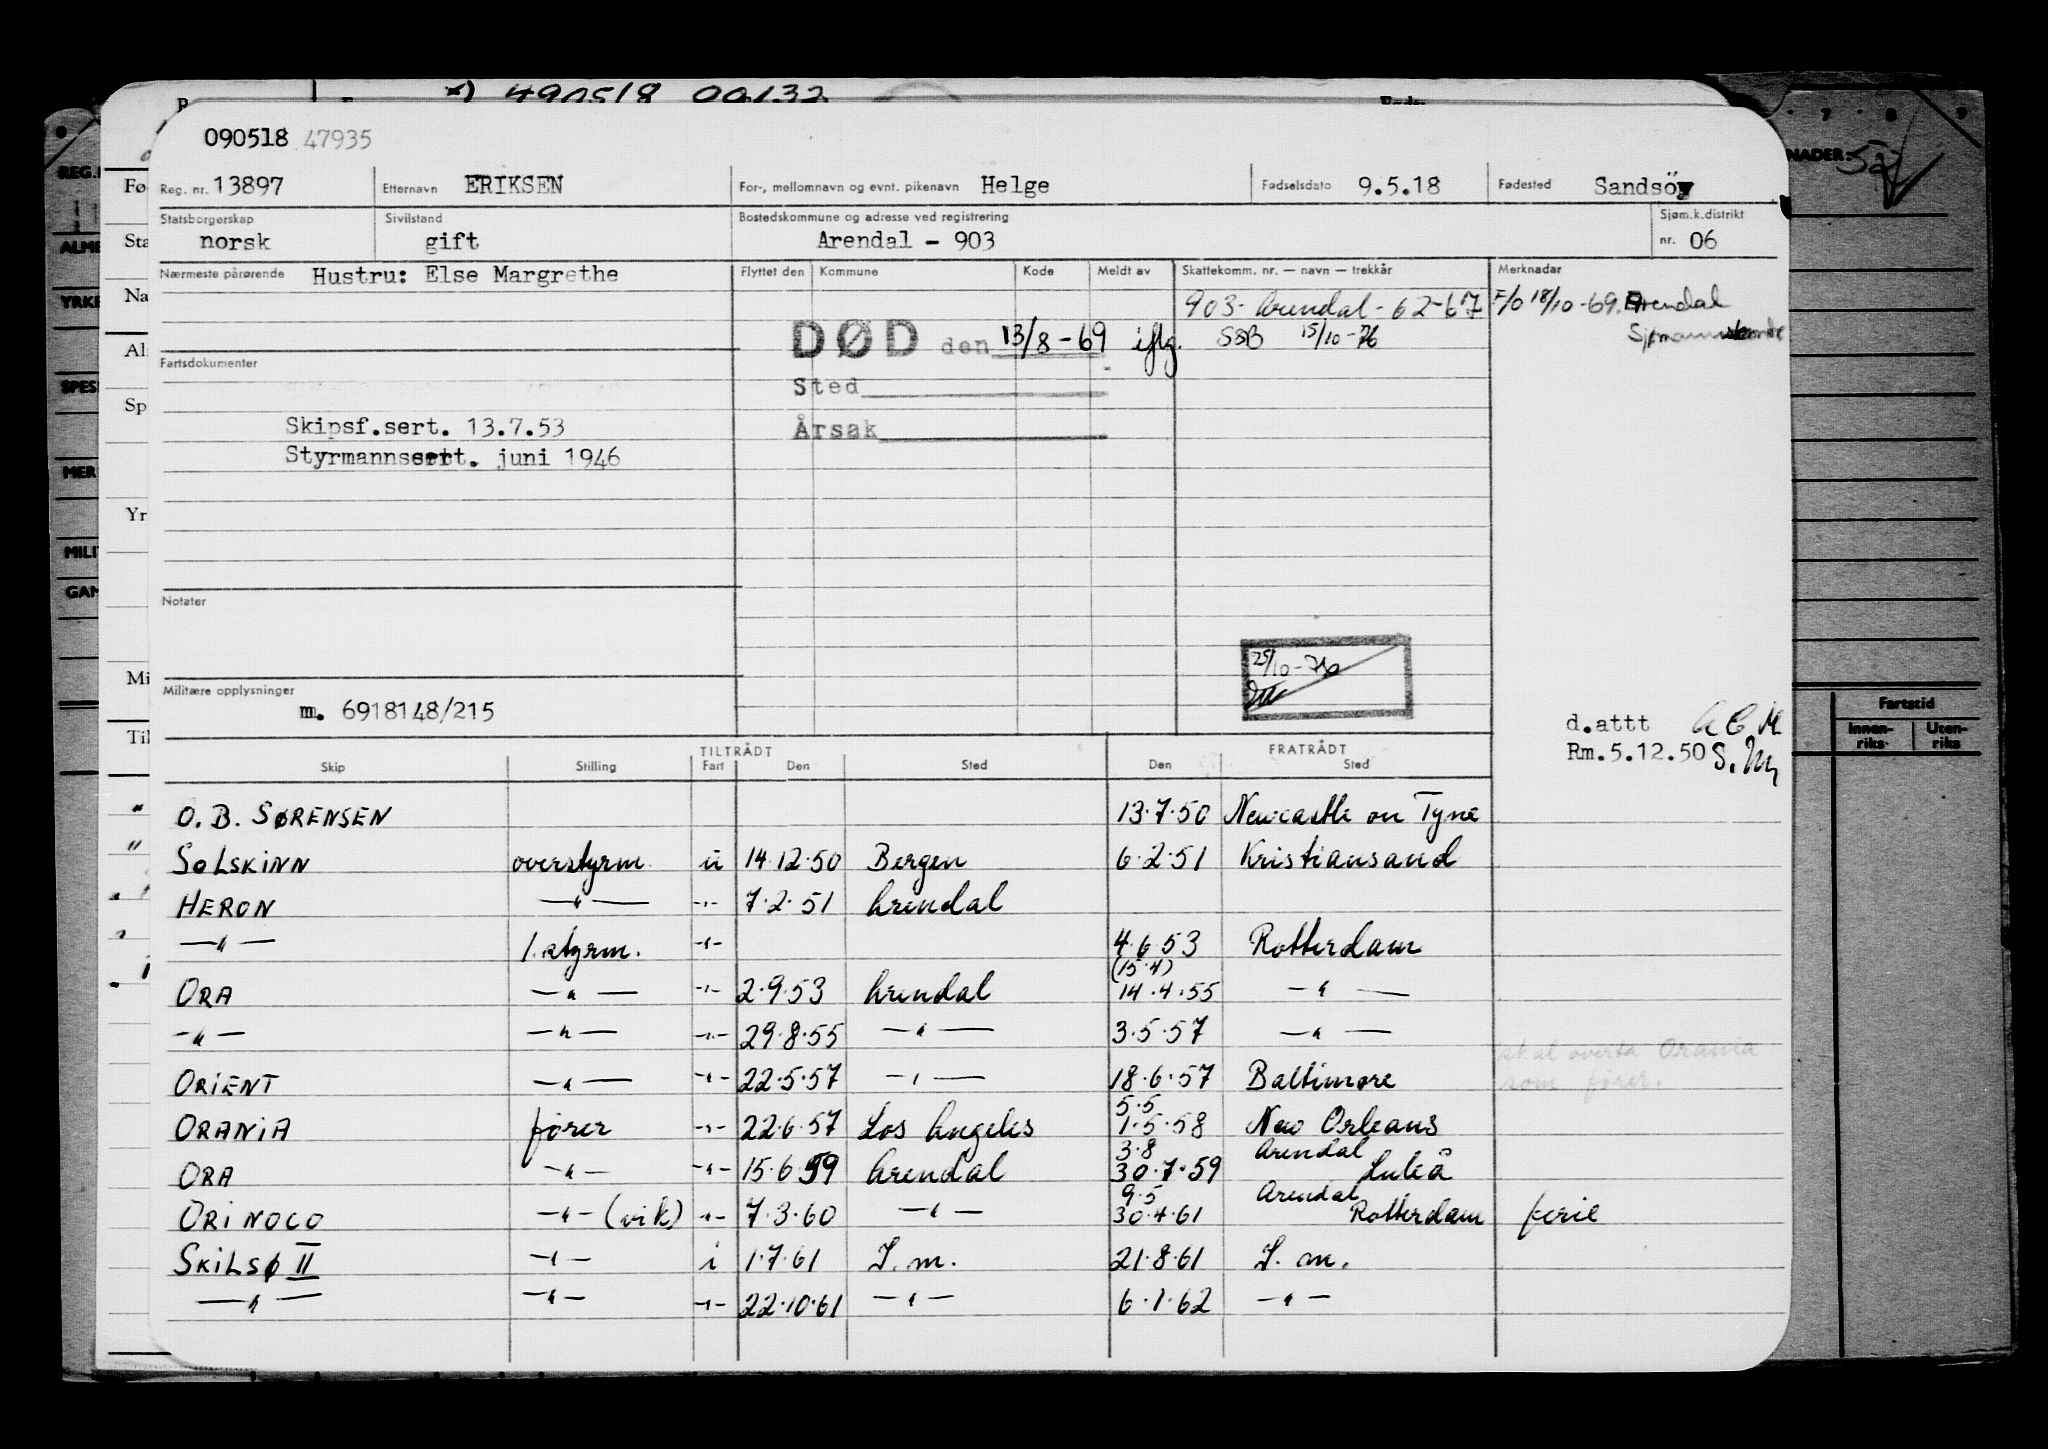 *) 490518 00132
090518 47935
Reg. nr. 13897 Etternavn ERIKSEN For-, mellomnavn og evnt. pikenavn Helge Fødselsdato 9.5.18 Fødested Sandsöy
Statsborgerskap norsk Sivilstand gift Bostedskommune og adresse ved registrering Arendal - 903 Sjøm.k.distrikt nr. 06
Nærmeste pårørende Hustru: Else Margrethe Flyttet den Kommune Kode Meldt av Skattekomm. nr. — navn — trekkår Merknadar
903- Arendal - 62-67 F/O 18/10-69. Arendal
DØD den 13/8-69 iflg. SSB 15/10-76
Fartsdokumenter
Sted
Skipsf.sert. 13.7.53 Årsak
Styrmannssert. juni 1946
Notater
25/10-76
Militære opplysninger
m. 6918148/215
d.attt
Rm.5.12.50
TILTRÅDT FRATRÅDT
Skip Stilling Fart Den Sted Den Sted
" O. B. SØRENSEN 13.7.50 Newcastle on Tyne
" SOLSKINN overstyrm. u 14.12.50 Bergen 6.2.51 Kristiansand
HERON —"— -"- 7.2.51 Arendal
—"— 1. styrm. -"- 4.6.53 Rotterdam
(15.4)
ORA —"— -"- 2.9.53 Arendal 14.4.55 —"—
—"— —"— -"- 29.8.55 —"— 3.5.57 —"—
skal overta Orania
ORIENT —"— -"- 22.5.57 —"— 18.6.57 Baltimore som fører.
5.5
ORANIA fører -"- 22.6.57 Los Angeles 1.5.58 New Orleans
3.8 Arendal
ORA —"— -"- 15.6.59 Arendal 30.7.59 Luleå
9.5 Arendal
ORINOCO —"— (vik) -"- 7.3.60 —"— 30.4.61 Rotterdam ferie
SKILSØ II —"— i 1.7.61 I. m. 21.8.61 I. m.
—"— —"— -"- 22.10.61 —"— 6.1.62 —"—
REG.
ALME
YRKE
SPES
MER
MILI
GAN
Fø
Sta
Na
Al
Sp
Yr
Mi
Til
7 8 9
NADER: 52
Fartstid
Innen-riks Uten-riks